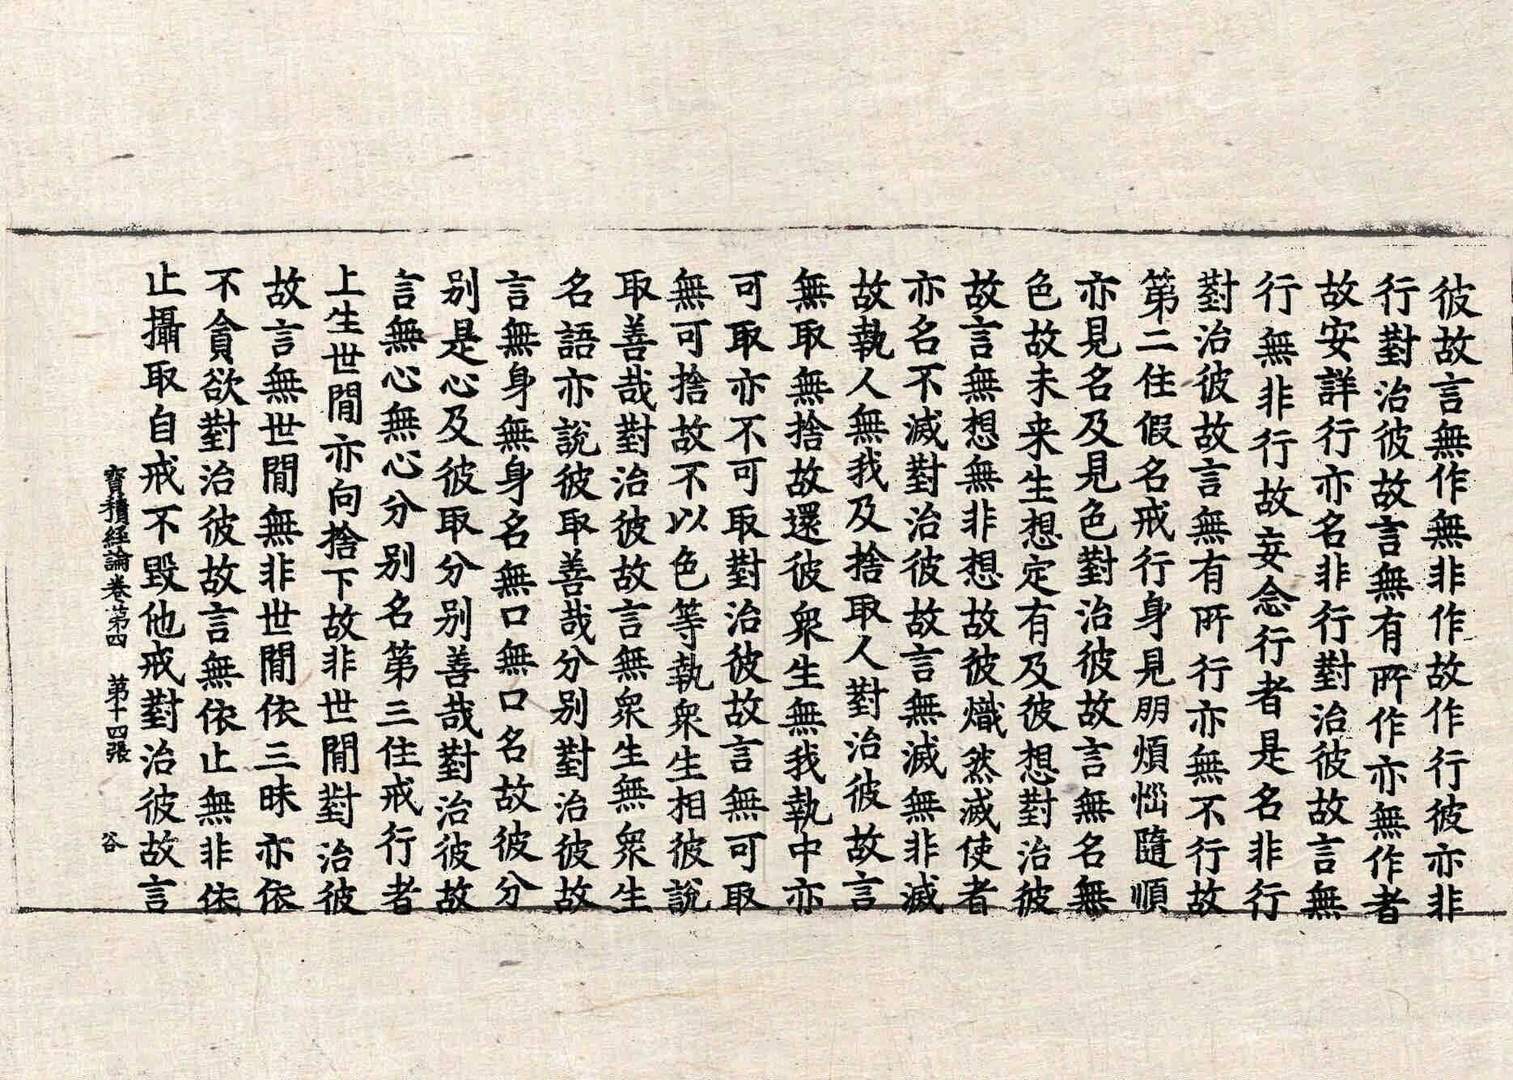 彼故言無作無非作故作行彼亦非
行對治彼故言無有所作亦無作者
故安詳行亦名非行對治彼故言無
行無非行故妄念行者是名非行
對治彼故言無有所行亦無不行故
第二住假名戒行身見朋煩惱隨順
亦見名及見色對治彼故言無名無
色故未来生想定有及彼想對治彼
故言無想無非想故彼熾然滅使者
亦名不滅對治彼故言無滅無非滅
故執人無我及捨取人對治彼故言
無取無捨故還彼衆生無我執中亦
可取亦不可取對治彼故言無可取
無可捨故不以色等執衆生相彼說
取善哉對治彼故言無衆生無衆生
名語亦說彼取善哉分别對治彼故
言無身無身名無口無口名故彼分
别是心及彼取分别善哉對治彼故
言無心無心分别名第三住戒行者
上生世閒亦向捨下故非世閒對治彼
故言無世閒無非世閒依三昧亦依
不貪欲對治彼故言無依止無非依
止攝取自戒不毀他戒對治彼故言
寶積經論卷第四　第十四張　谷